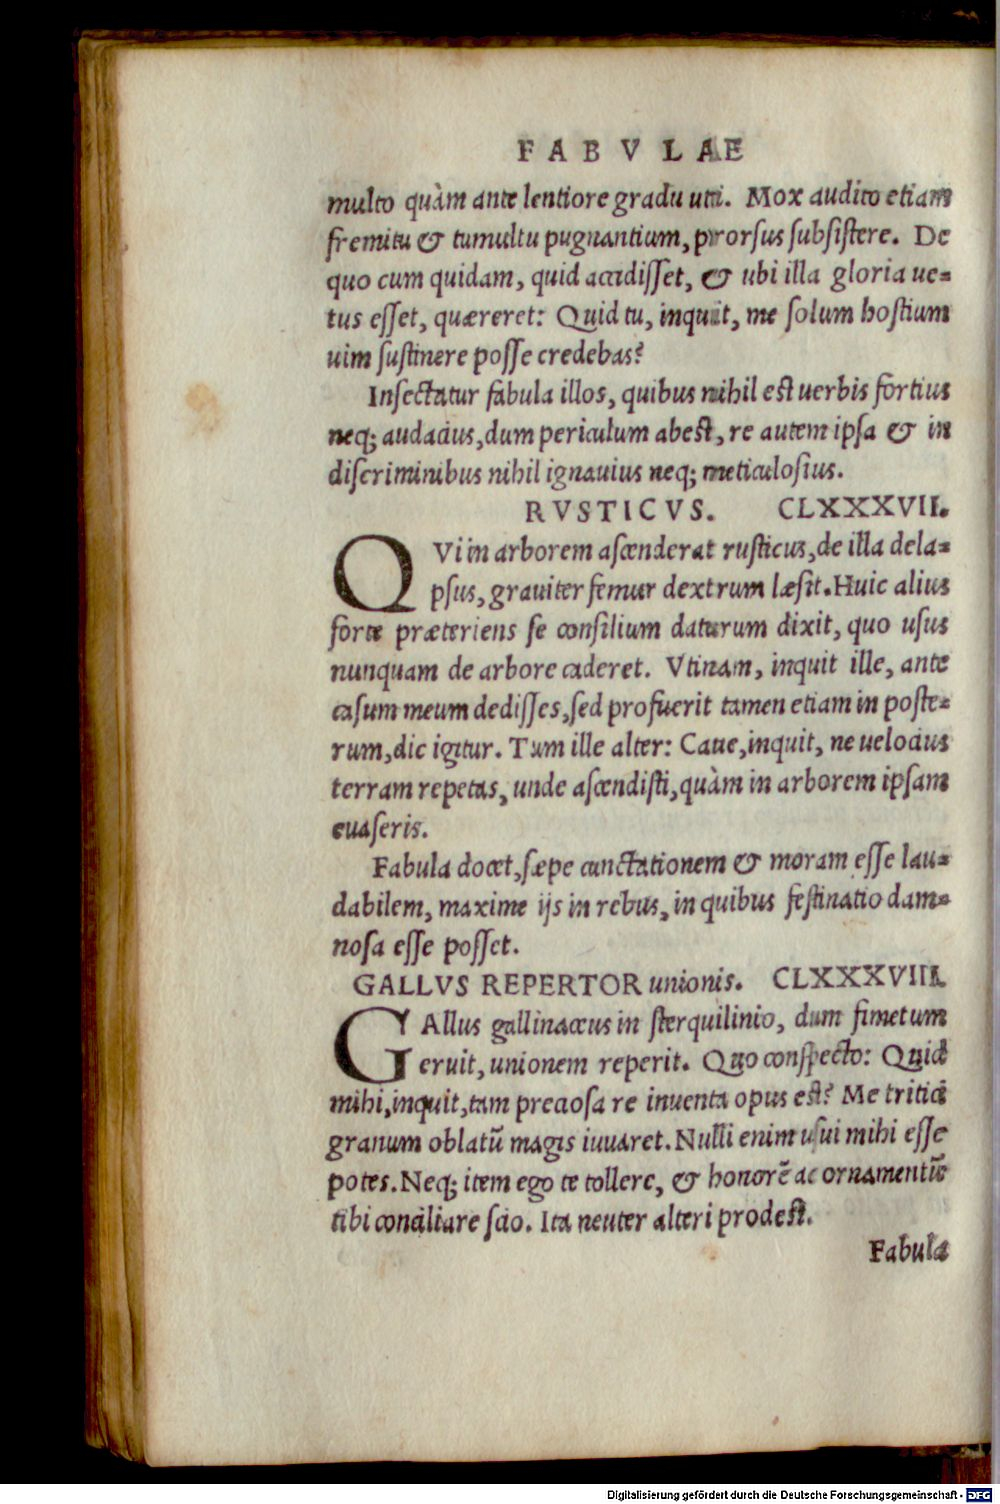 FABVLAE
multo quàm ante lentiore gradu uti. Mox audito etiam
fremitu & tumultu pugnantium, prorsus subsistere. De
quo cum quidam, quid accidisset, & ubi illa gloria ue=
tus esset, quæreret: Quid tu, inquit, me solum hostium
uim sustinere posse credebas?
Insectatur fabula illos, quibus nihil est uerbis fortius
neq; audacius, dum periculum abest, re autem ipsa & in
discriminibus nihil ignauius neq; meticulosius.
RVSTICVS. CLXXXVII.
QVi in arborem ascenderat rusticus, de illa dela=
psus, grauiter femur dextrum læsit. Huic alius
forte præteriens se consilium daturum dixit, quo usus
nunquam de arbore caderet. Vtinam, inquit ille, ante
casum meum dedisses, sed profuerit tamen etiam in poste=
rum, dic igitur. Tum ille alter: Caue, inquit, ne uelocius
terram repetas, unde ascendisti, quàm in arborem ipsam
euaseris.
Fabula docet, sæpe cunctationem & moram esse lau=
dabilem, maxime ijs in rebus, in quibus festinatio dam=
nosa esse posset.
GALLVS REPERTOR unionis. CLXXXVIII.
GAllus gallinaceus in sterquilinio, dum fimetum
eruit, unionem reperit. Quo conspecto: Quid
mihi, inquit, tam preciosa re inuenta opus est? Me tritici
granum oblatū magis iuuaret. Nulli enim usui mihi esse
potes. Neq; item ego te tollere, & honorē ac ornamentū
tibi conciliare scio. Ita neuter alteri prodest.
Fabula
Digitalisierung gefördert durch die Deutsche Forschungsgemeinschaft - DFG